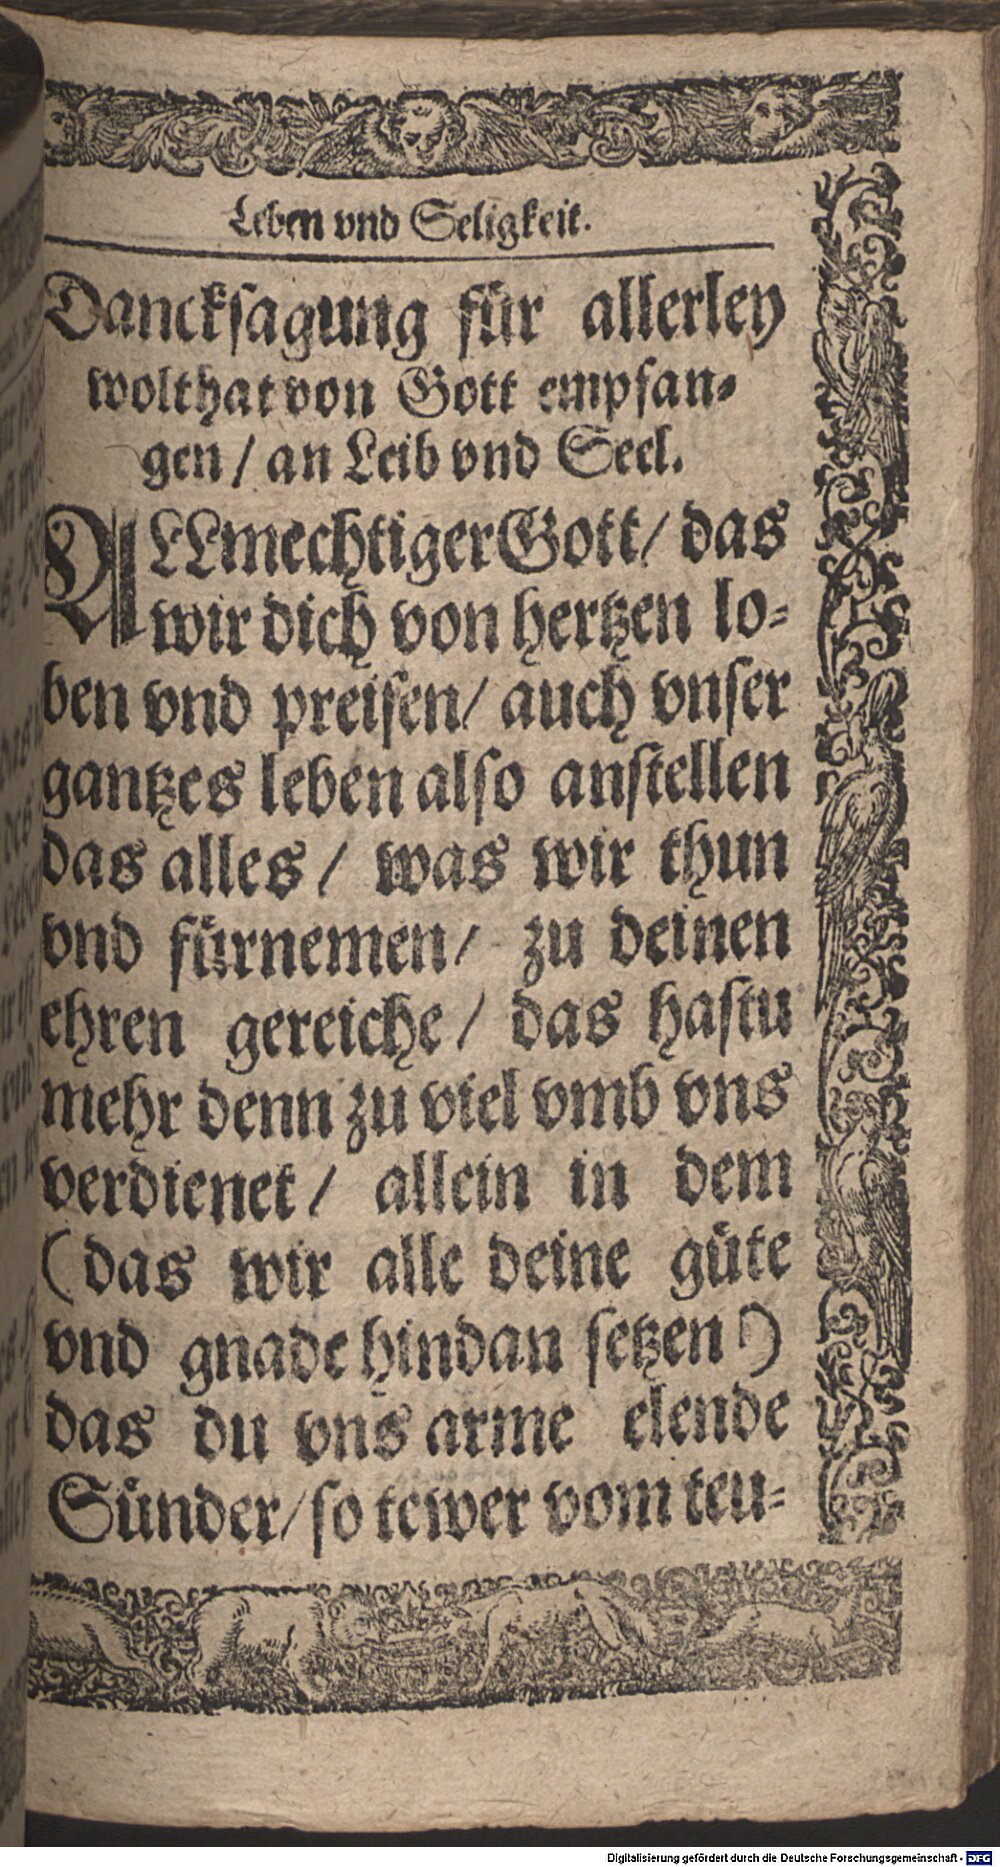 Leben vnd Seligkeit.
Dancksagung für allerley
wolthat von Gott empfan-
gen / an Leib vnd Seel.
ALLmechtiger Gott / das
wir dich von hertzen lo-
ben vnd preisen / auch vnser
gantzes leben also anstellen
das alles / was wir thun
vnd fürnemen / zu deinen
ehren gereiche / das hastu
mehr denn zu viel vmb vns
verdienet / allein in dem
(das wir alle deine güte
vnd gnade hindan setzen)
das du vns arme elende
Sünder / so tewer vom teu-
Digitalisierung gefördert durch die Deutsche Forschungsgemeinschaft - DFG